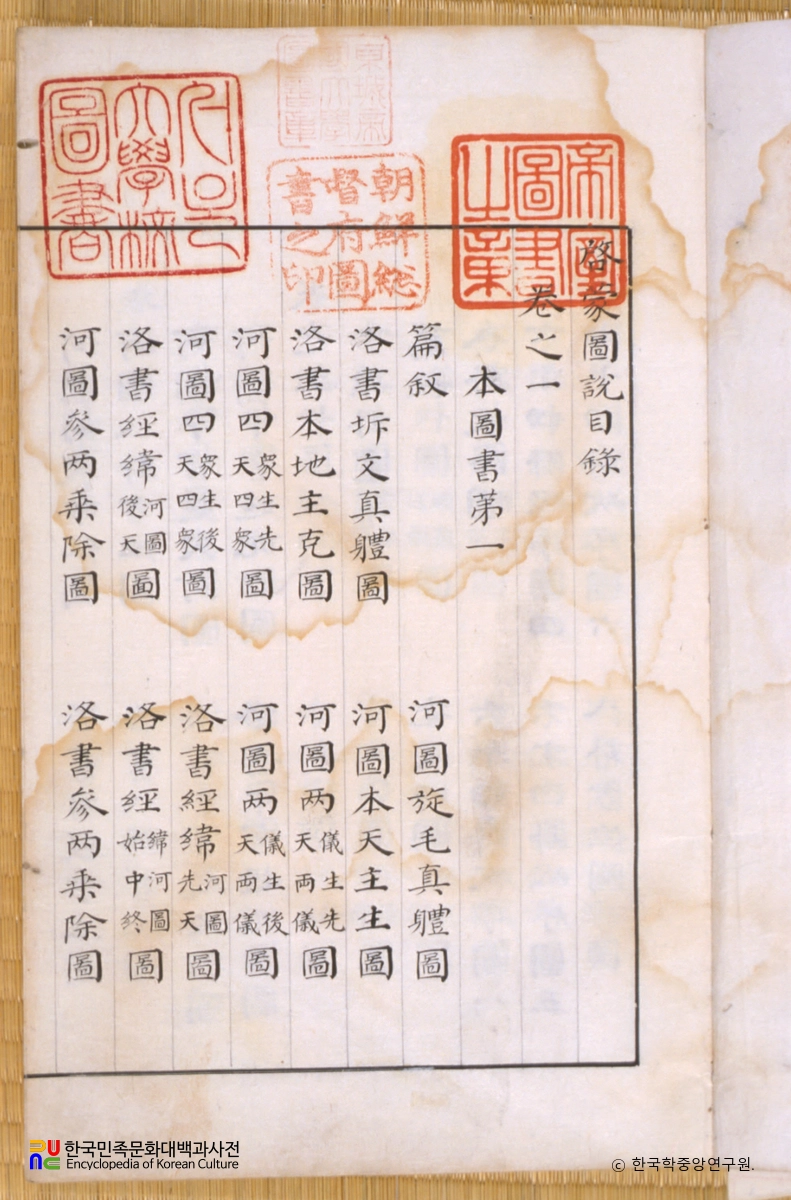 帝室圖書之章
朝鮮総督府圖書之印
서울大學校圖書
啓蒙圖說目錄
卷之一
本圖書苐一
篇叙 河圖旋毛真軆圖
洛書坼文真軆圖 河圖本天主生圖
洛書本地主克圖 河圖两儀生先天両儀圖
河圖四象生先天四象圖 河圖两儀生後天両儀圖
河圖四象生後天四象圖 洛書經緯河圖先天圖
洛書經緯河圖後天圖 洛書經緯河圖始中終圖
河圖參两乘除圖 洛書參两乘除圖
한국민족문화대백과사전
Encyclopedia of Korean Culture
© 한국학중앙연구원.